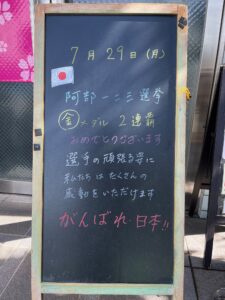 7月29日(月)
阿部一二三選挙
金メダル 2連覇
おめでとうございます
選手の頑張る姿に
私たちは たくさんの
感動をいただけます
がんばれ 日本!!